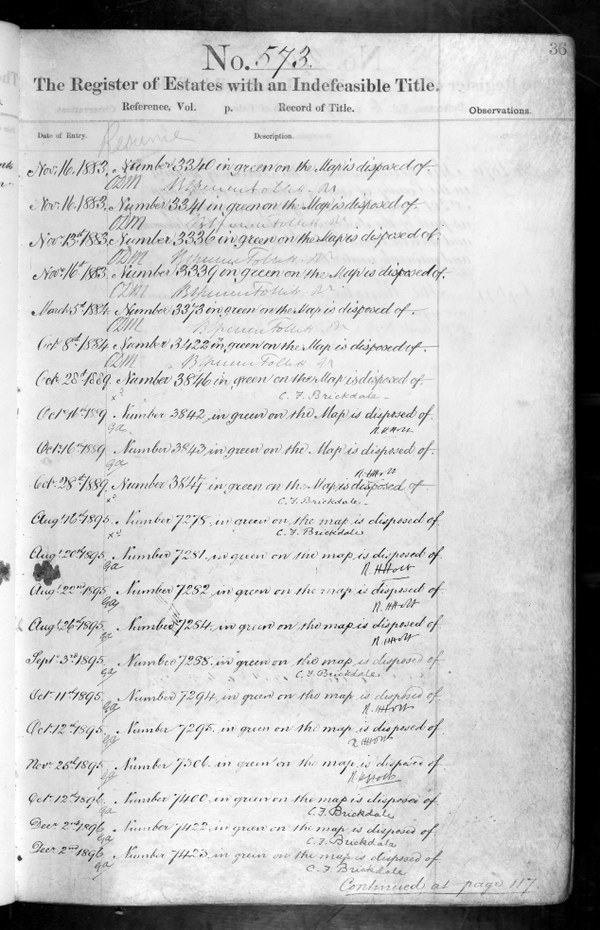 36
No. 573.
The Register of Estates with an Indefeasible Title.
Reference, Vol. p. Record of Title.
Observations.
Date of Entry. Description.
Novr. 16. 1883. Number 3340 in green on the Map is disposed of.
Novr. 16. 1883. Number 3341 in green on the Map is disposed of.
Novr. 13th 1883. Number 3336 in green on the Map is disposed of.
Novr. 16th 1883 Number 3339 in green on the Map is disposed of.
March 5th 1884 Number 3373 in green on the Map is disposed of.
Oct. 8th 1884 Number 3422 in green on the Map is disposed of.
Oct. 28th 1889. Number 3846 in green on the Map is disposed of
C. F. Brickdale
Oct. 16th 1889 Number 3842 in green on the Map is disposed of
R. H. Holt
Oct. 16th 1889. Number 3843 in green on the Map is disposed of.
R. H. Holt
Oct. 28th 1889 Number 3847 in green on the Map is disposed of
C. F. Brickdale
Augt. 16th 1895. Number 7278, in green on the map is disposed of
C. F. Brickdale
Augt. 20th 1895. Number 7281, in green on the map, is disposed of
R. H. Holt
Augt. 22nd 1895. Number 7282, in green on the map, is disposed of
R. H. Holt
Augt. 26th 1895. Number 7284, in green on the map, is disposed of
R. H. Holt
Septr. 3rd 1895. Number 7288, in green on the map, is disposed of
C. F. Brickdale
Oct. 11th 1895. Number 7294, in green on the map, is disposed of
R. H. Holt
Oct. 12th 1895. Number 7295, in green on the map, is disposed of
R. H. Holt
Novr. 25th 1895. Number 7306 in green on the map, is disposed of
R. H. Holt
Oct. 12th 1896. Number 7400, in green on the map, is disposed of
C. F. Brickdale
Decr. 2nd 1896. Number 7422, in green on the map, is disposed of
C. F. Brickdale
Decr. 2nd 1896. Number 7423, in green on the map, is disposed of
C. F. Brickdale
Continued at page 117.